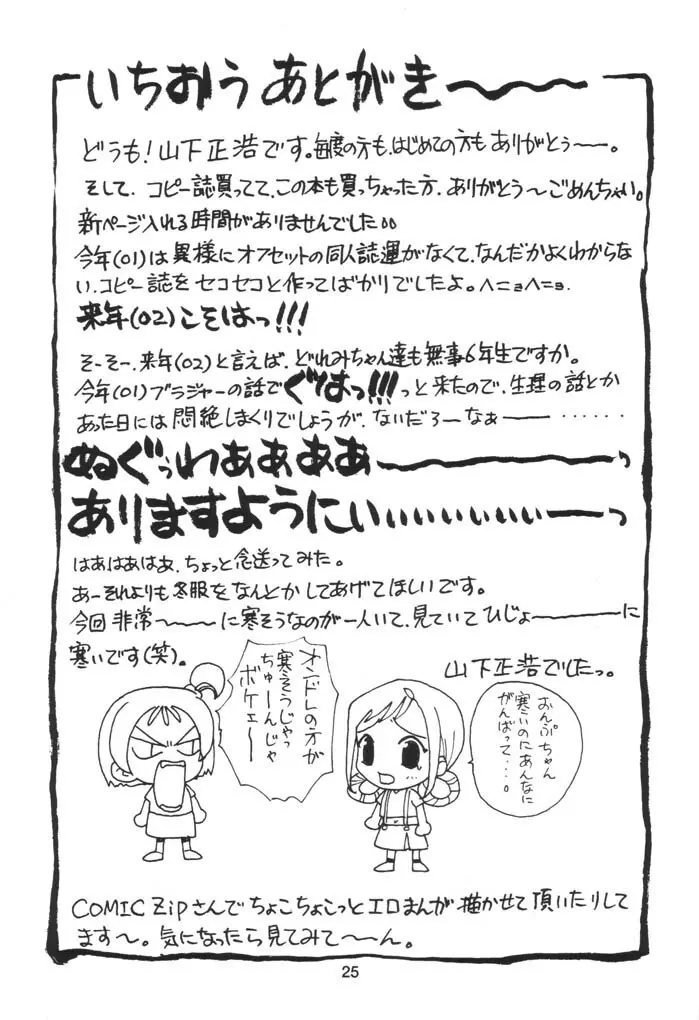 いちおう あとがき〜〜〜
どうも!山下正浩です。毎度の方も、はじめての方もありがとぅ〜〜。
そして、コピー誌買ってて、この本も買っちゃった方、ありがとう〜ごめんちゃい。
新ページ入れる時間がありませんでした。。
今年(01)は異様にオフセットの同人誌運がなくて、なんだかよくわからな
い、コピー誌をセコセコと作ってばかりでしたよ。ヘニョヘニョ。
来年(02)こそはっ!!!
そーそー、来年(02)と言えば、どれみちゃん達も無事6年生ですか。
今年(01)ブラジャーの話でぐはっ!!!っと来たので、生理の話とか
あった日には悶絶しまくりでしょうが、ないだろーなぁ―――‥‥‥
ぬぐっわぁぁぁぁ〜〜〜〜っ
ありますようにぃぃぃぃぃぃぃぃーーっ
はあはあはぁ、ちょっと念送ってみた。
あーそれよりも冬服をなんとかしてあげてほしいです。
今回非常〜〜〜に寒そうなのが一人いて、見ていてひじょ―――――に
寒いです(笑)。
山下正浩でしたっ。
オンドレの方が
寒そうじゃっ
ちゅーんじゃ
ボケェ〜
おんぷちゃん
寒いのにあんなに
がんばって・・・。
COMIC Zipさんでちょこちょこっとエロまんが描かせて頂いたりして
ます〜。気になったら見てみて〜〜ん。
25